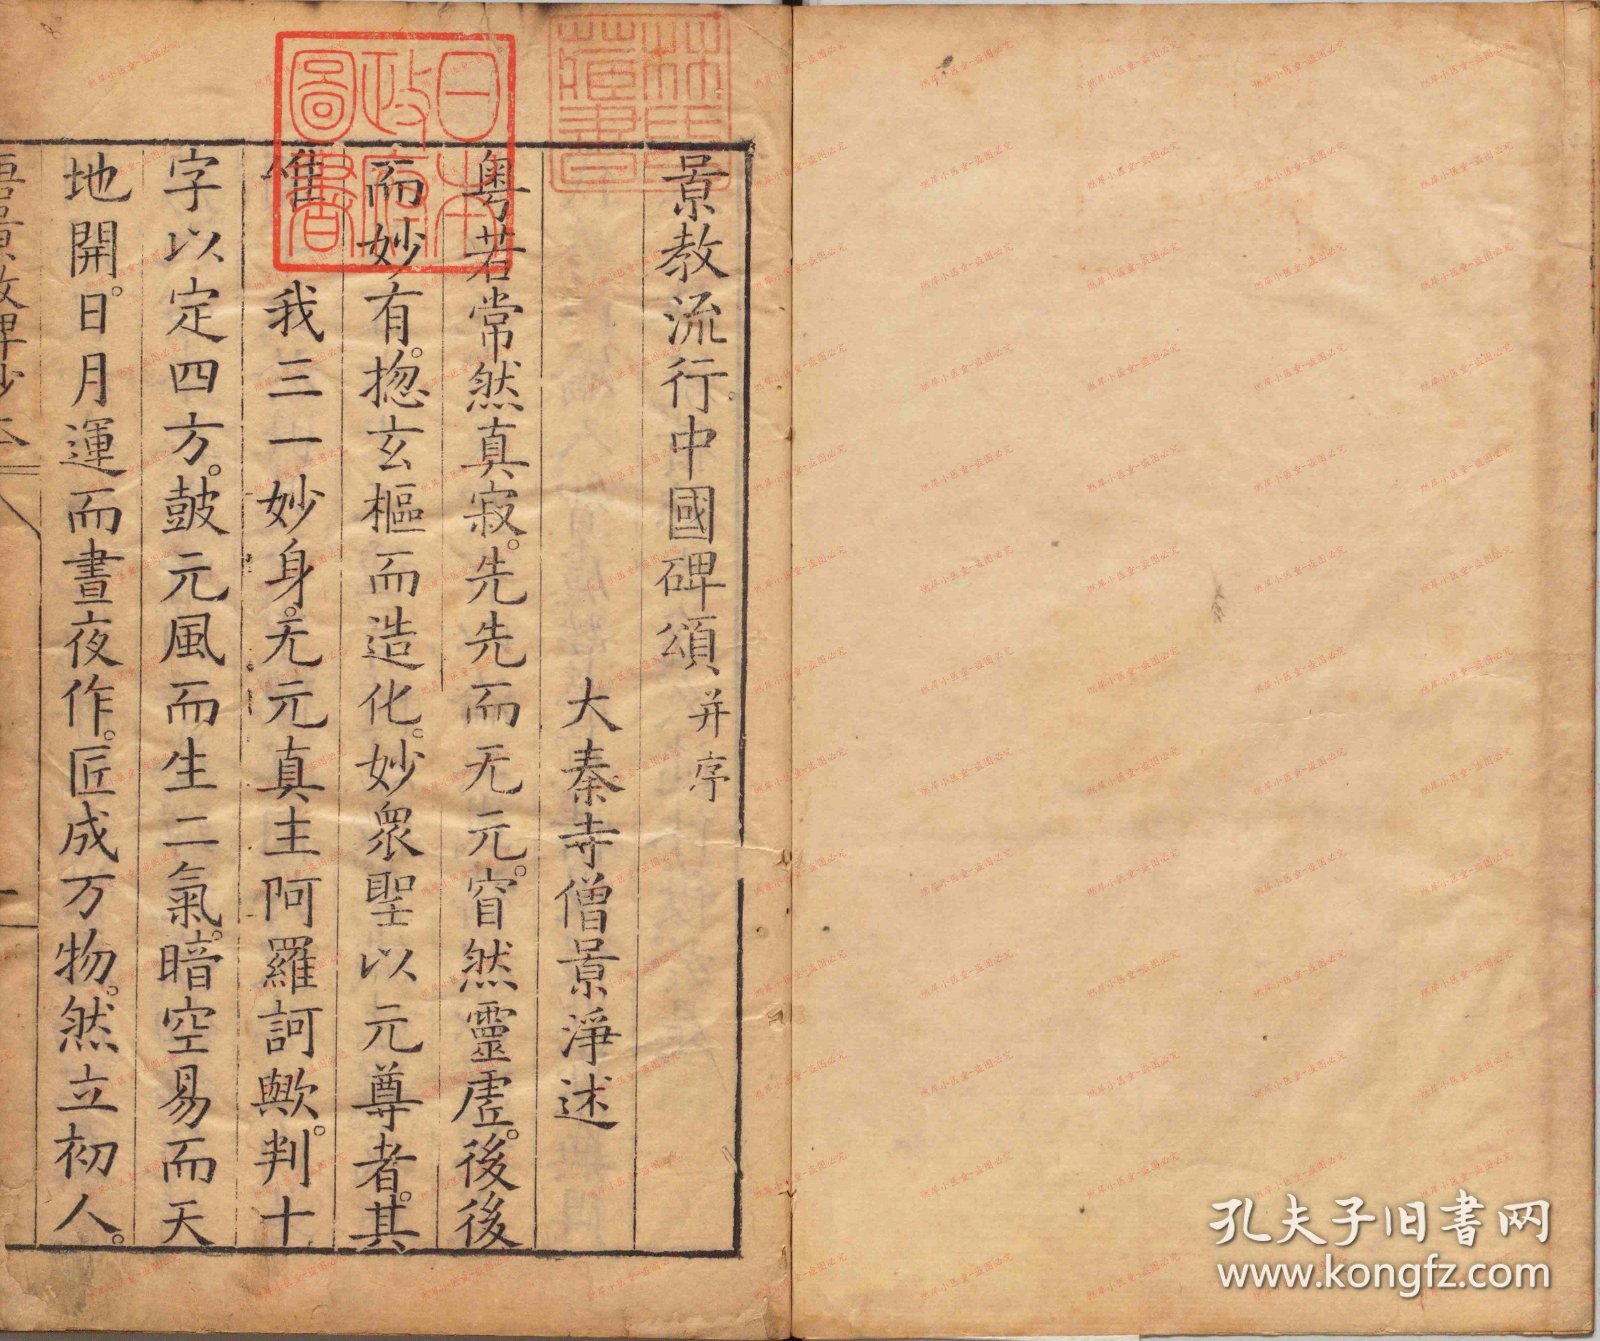 景教流行中國碑頌并序
大秦寺僧景淨述
粵若常然真寂先先而无元窅然靈虛後後
而妙有揔玄樞而造化妙衆聖以元尊者其
唯我三一妙身无元真主阿羅訶歟判十
字以定四方鼓元風而生二氣暗空易而天
地開日月運而晝夜作匠成万物然立初人
日本政府圖書
林氏藏書
孔夫子旧書网
www.kongfz.com